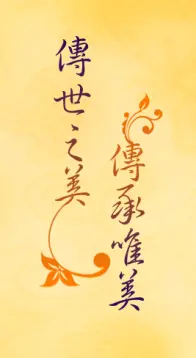 傳世之美
傳承唯美